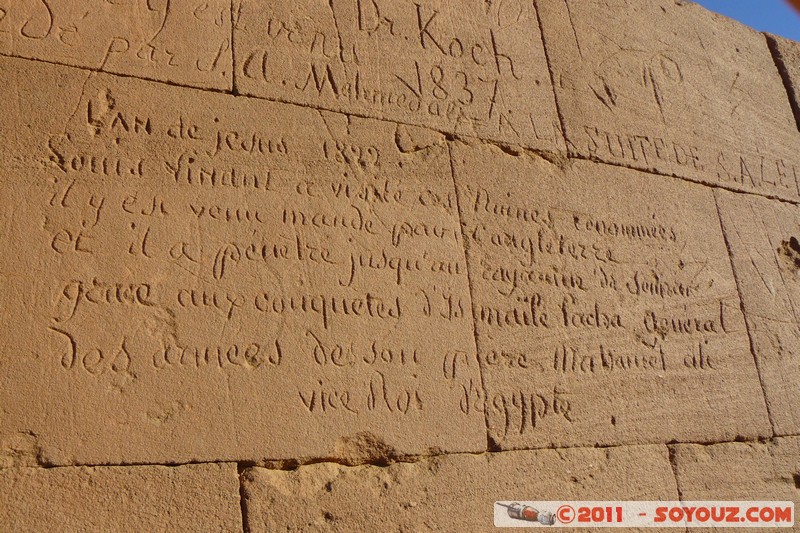 y est venu Dr. Koch
dé par S. A. Mahmed ali 1837
A LA SUITE DE S.A.LE
L'AN de jesus 1822
Louis Linant a visité ces Ruines renommées,
il y est venu mandé par L'angleterre
et il a pénétré jusqu'au royaume de Sennar
grace aux conquetes d'Ismaïle Pacha général
des armées de son père Mahamet ali
vice Roi d'egypte
©2011 - www.soyouz.com